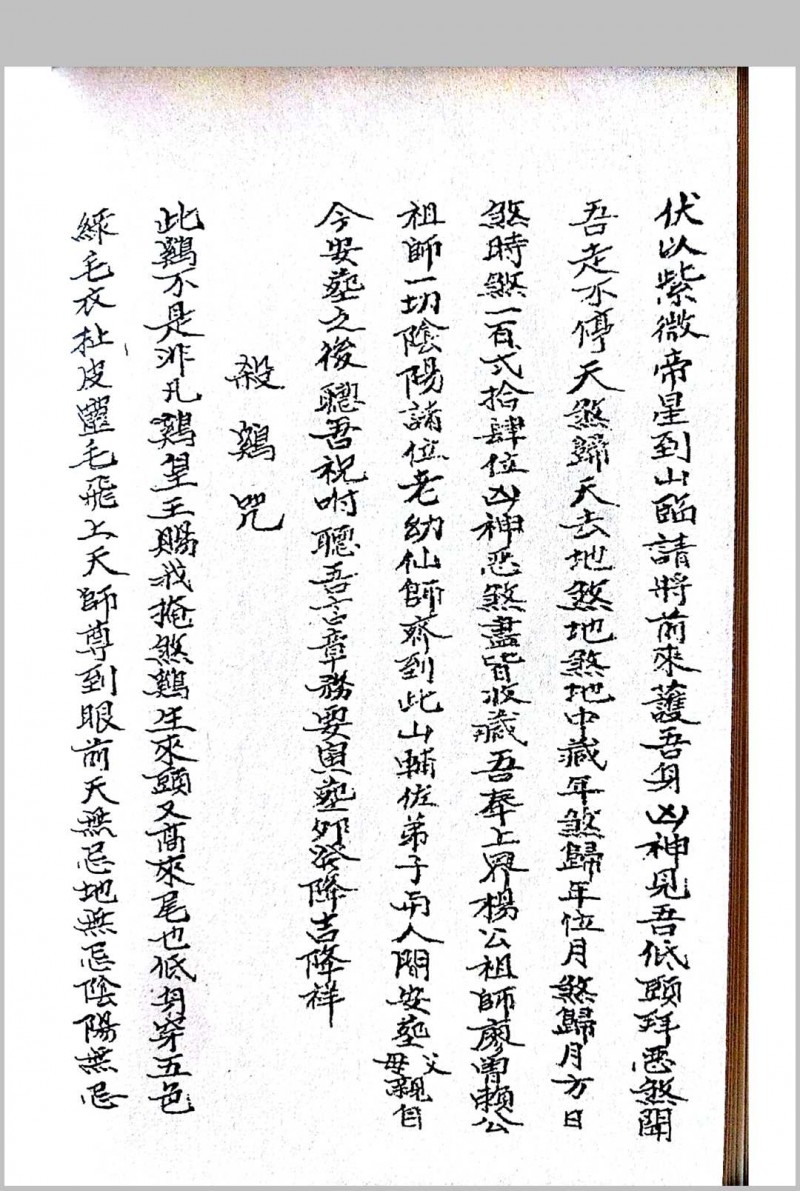 伏以紫微帝星到山臨請將前來護吾身凶神見吾低頭拜惡煞聞
吾走不停天煞歸天去地煞地煞地中藏年煞歸年位月煞歸月方日
煞時煞一百弍拾肆位凶神惡煞盡皆收藏吾奉上界楊公祖師廖曾賴公
祖師一切陰陽諸位老幼仙師齊到此山輔佐弟子與人間安塟父母親自
今安塟之後聽吾祝咐聽吾言章務要與塟邜浴降吉降祥
殺鷄咒
此鷄不是非凡鷄皇王賜我掩煞鷄生來頭又髙來尾也低身穿五色
綠毛衣扯皮靈毛飛上天師尊到眼前天無忌地無忌陰陽無忌